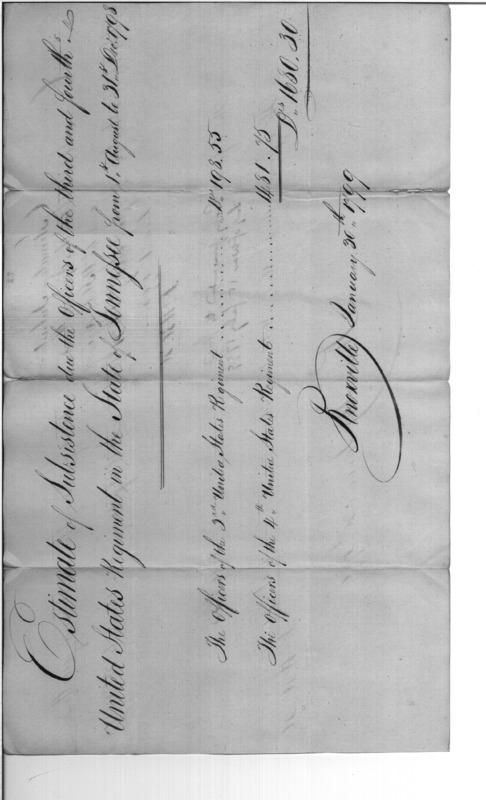 Estimate of Subsistence due the Officers of the third and fourth
United States Regiment in the State of Tennessee from 1st August to 31st Decr 1798
The Officers of the 3rd United States Regiment ........ 1198.55
The Officers of the 4th United States Regiment ........ 481.75
Drs 1680.30
Knoxville January 30th 1799